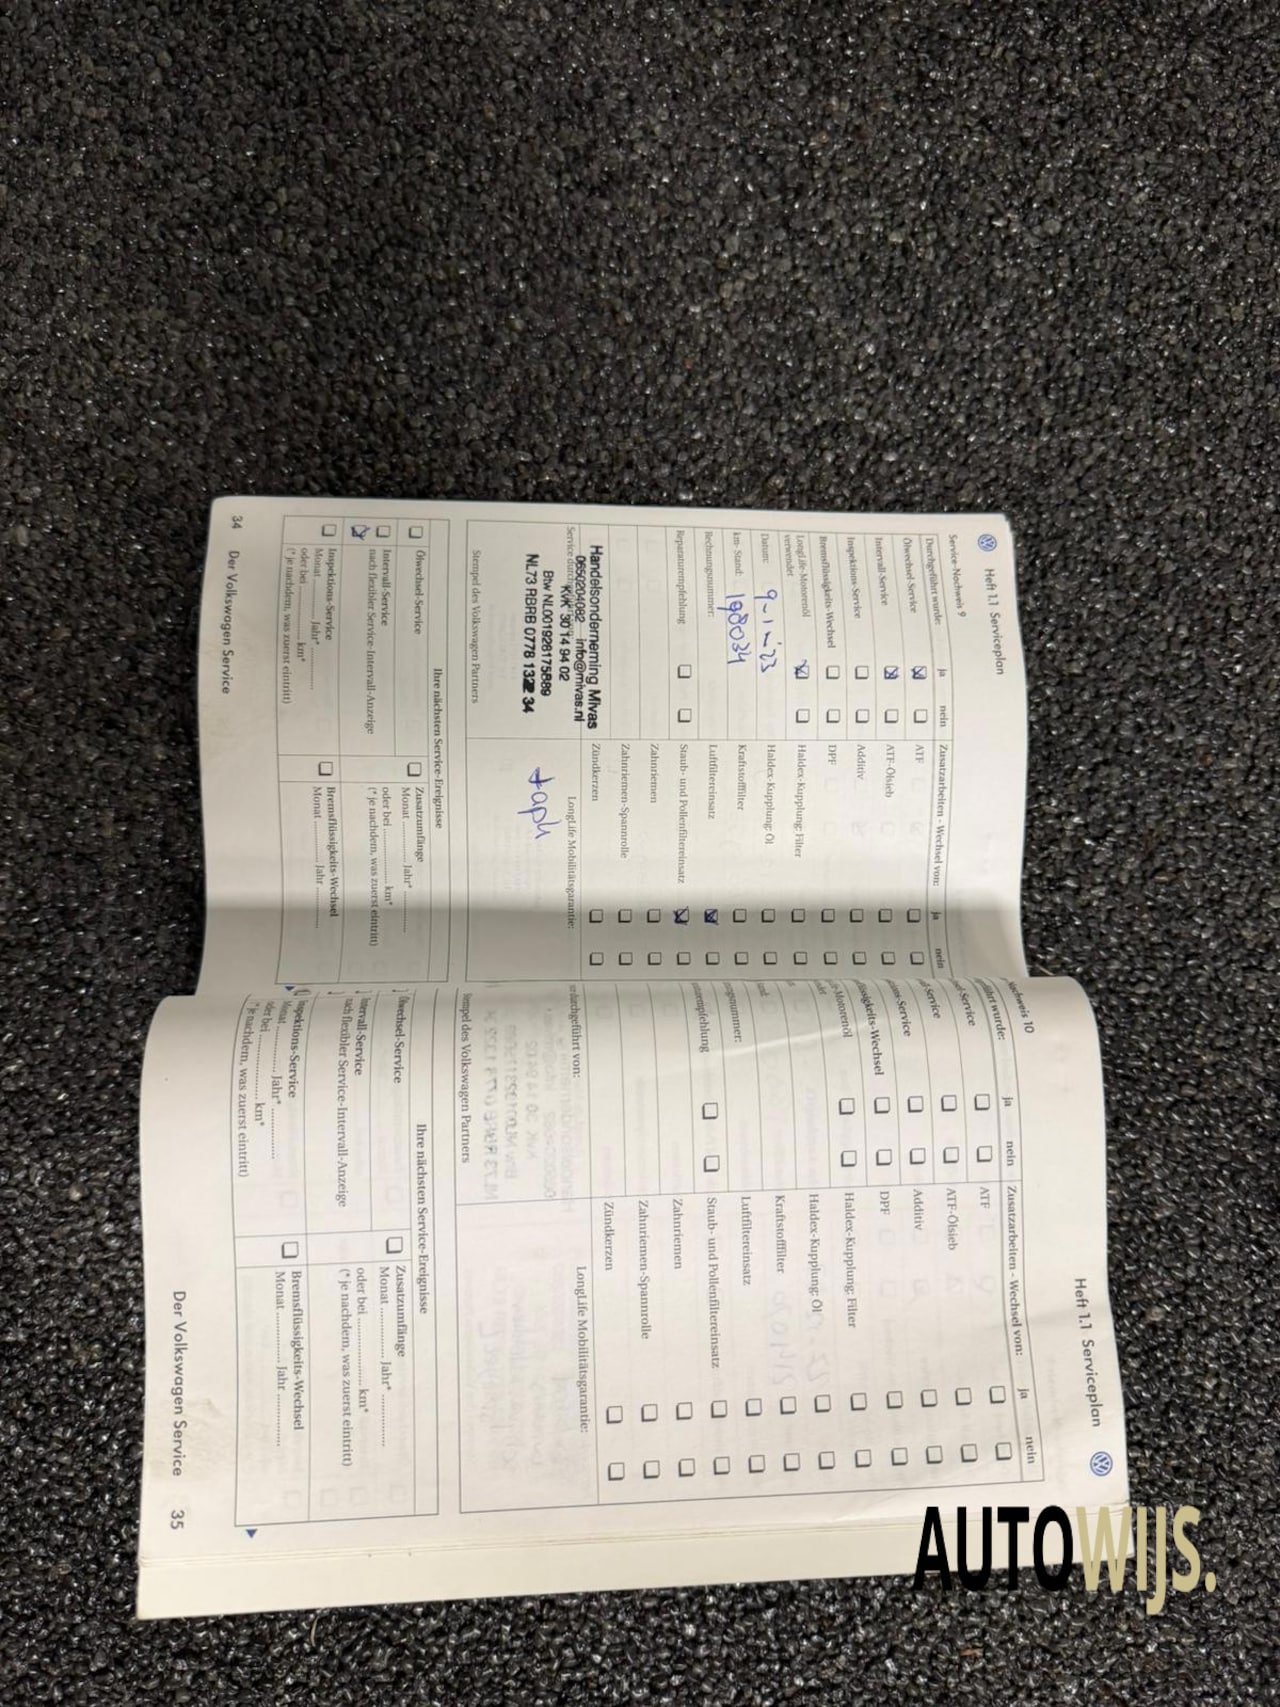 Heft 1.1 Serviceplan
Service-Nachweis 9
Durchgeführt wurde:
ja
nein
Ölwechsel-Service
Intervall-Service
Inspektions-Service
Bremsflüssigkeits-Wechsel
LongLife-Motorenöl
verwendet
Datum: 9-1-'23
km- Stand: 198034
Rechnungsnummer:
Reparaturempfehlung
Zusatzarbeiten - Wechsel von:
ja
nein
ATF
ATF-Ölsieb
Additiv
DPF
Haldex-Kupplung: Filter
Haldex-Kupplung: Öl
Kraftstofffilter
Luftfiltereinsatz
Staub- und Pollenfiltereinsatz
Zahnriemen
Zahnriemen-Spannrolle
Zündkerzen
Service durch
Handelsonderneming Mivas
0650204082 info@mivas.nl
KvK 30 14 94 02
Btw NL001928175B69
NL73 RBRB 0778 1322 34
Stempel des Volkswagen Partners
LongLife Mobilitätsgarantie:
Ihre nächsten Service-Ereignisse
Ölwechsel-Service
Intervall-Service
nach flexibler Service-Intervall-Anzeige
Inspektions-Service
Monat ............. Jahr* .............
oder bei ................. km*
(* je nachdem, was zuerst eintritt)
Zusatzumfänge
Monat ............. Jahr* .............
oder bei ................. km*
(* je nachdem, was zuerst eintritt)
Bremsflüssigkeits-Wechsel
Monat ............. Jahr .............
34 Der Volkswagen Service
Heft 1.1 Serviceplan
chweis 10
ührt wurde:
ja
nein
el-Service
l-Service
ns-Service
üssigkeits-Wechsel
e-Motorenöl
ngsnummer:
turempfehlung
Zusatzarbeiten - Wechsel von:
ja
nein
ATF
ATF-Ölsieb
Additiv
DPF
Haldex-Kupplung: Filter
Haldex-Kupplung: Öl
Kraftstofffilter
Luftfiltereinsatz
Staub- und Pollenfiltereinsatz
Zahnriemen
Zahnriemen-Spannrolle
Zündkerzen
durchgeführt von:
tempel des Volkswagen Partners
LongLife Mobilitätsgarantie:
Ihre nächsten Service-Ereignisse
Ölwechsel-Service
Intervall-Service
nach flexibler Service-Intervall-Anzeige
Inspektions-Service
Monat ............. Jahr* .............
oder bei ................. km*
(* je nachdem, was zuerst eintritt)
Zusatzumfänge
Monat ............. Jahr* .............
oder bei ................. km*
(* je nachdem, was zuerst eintritt)
Bremsflüssigkeits-Wechsel
Monat ............. Jahr .............
Der Volkswagen Service 35
AUTOWIJS.